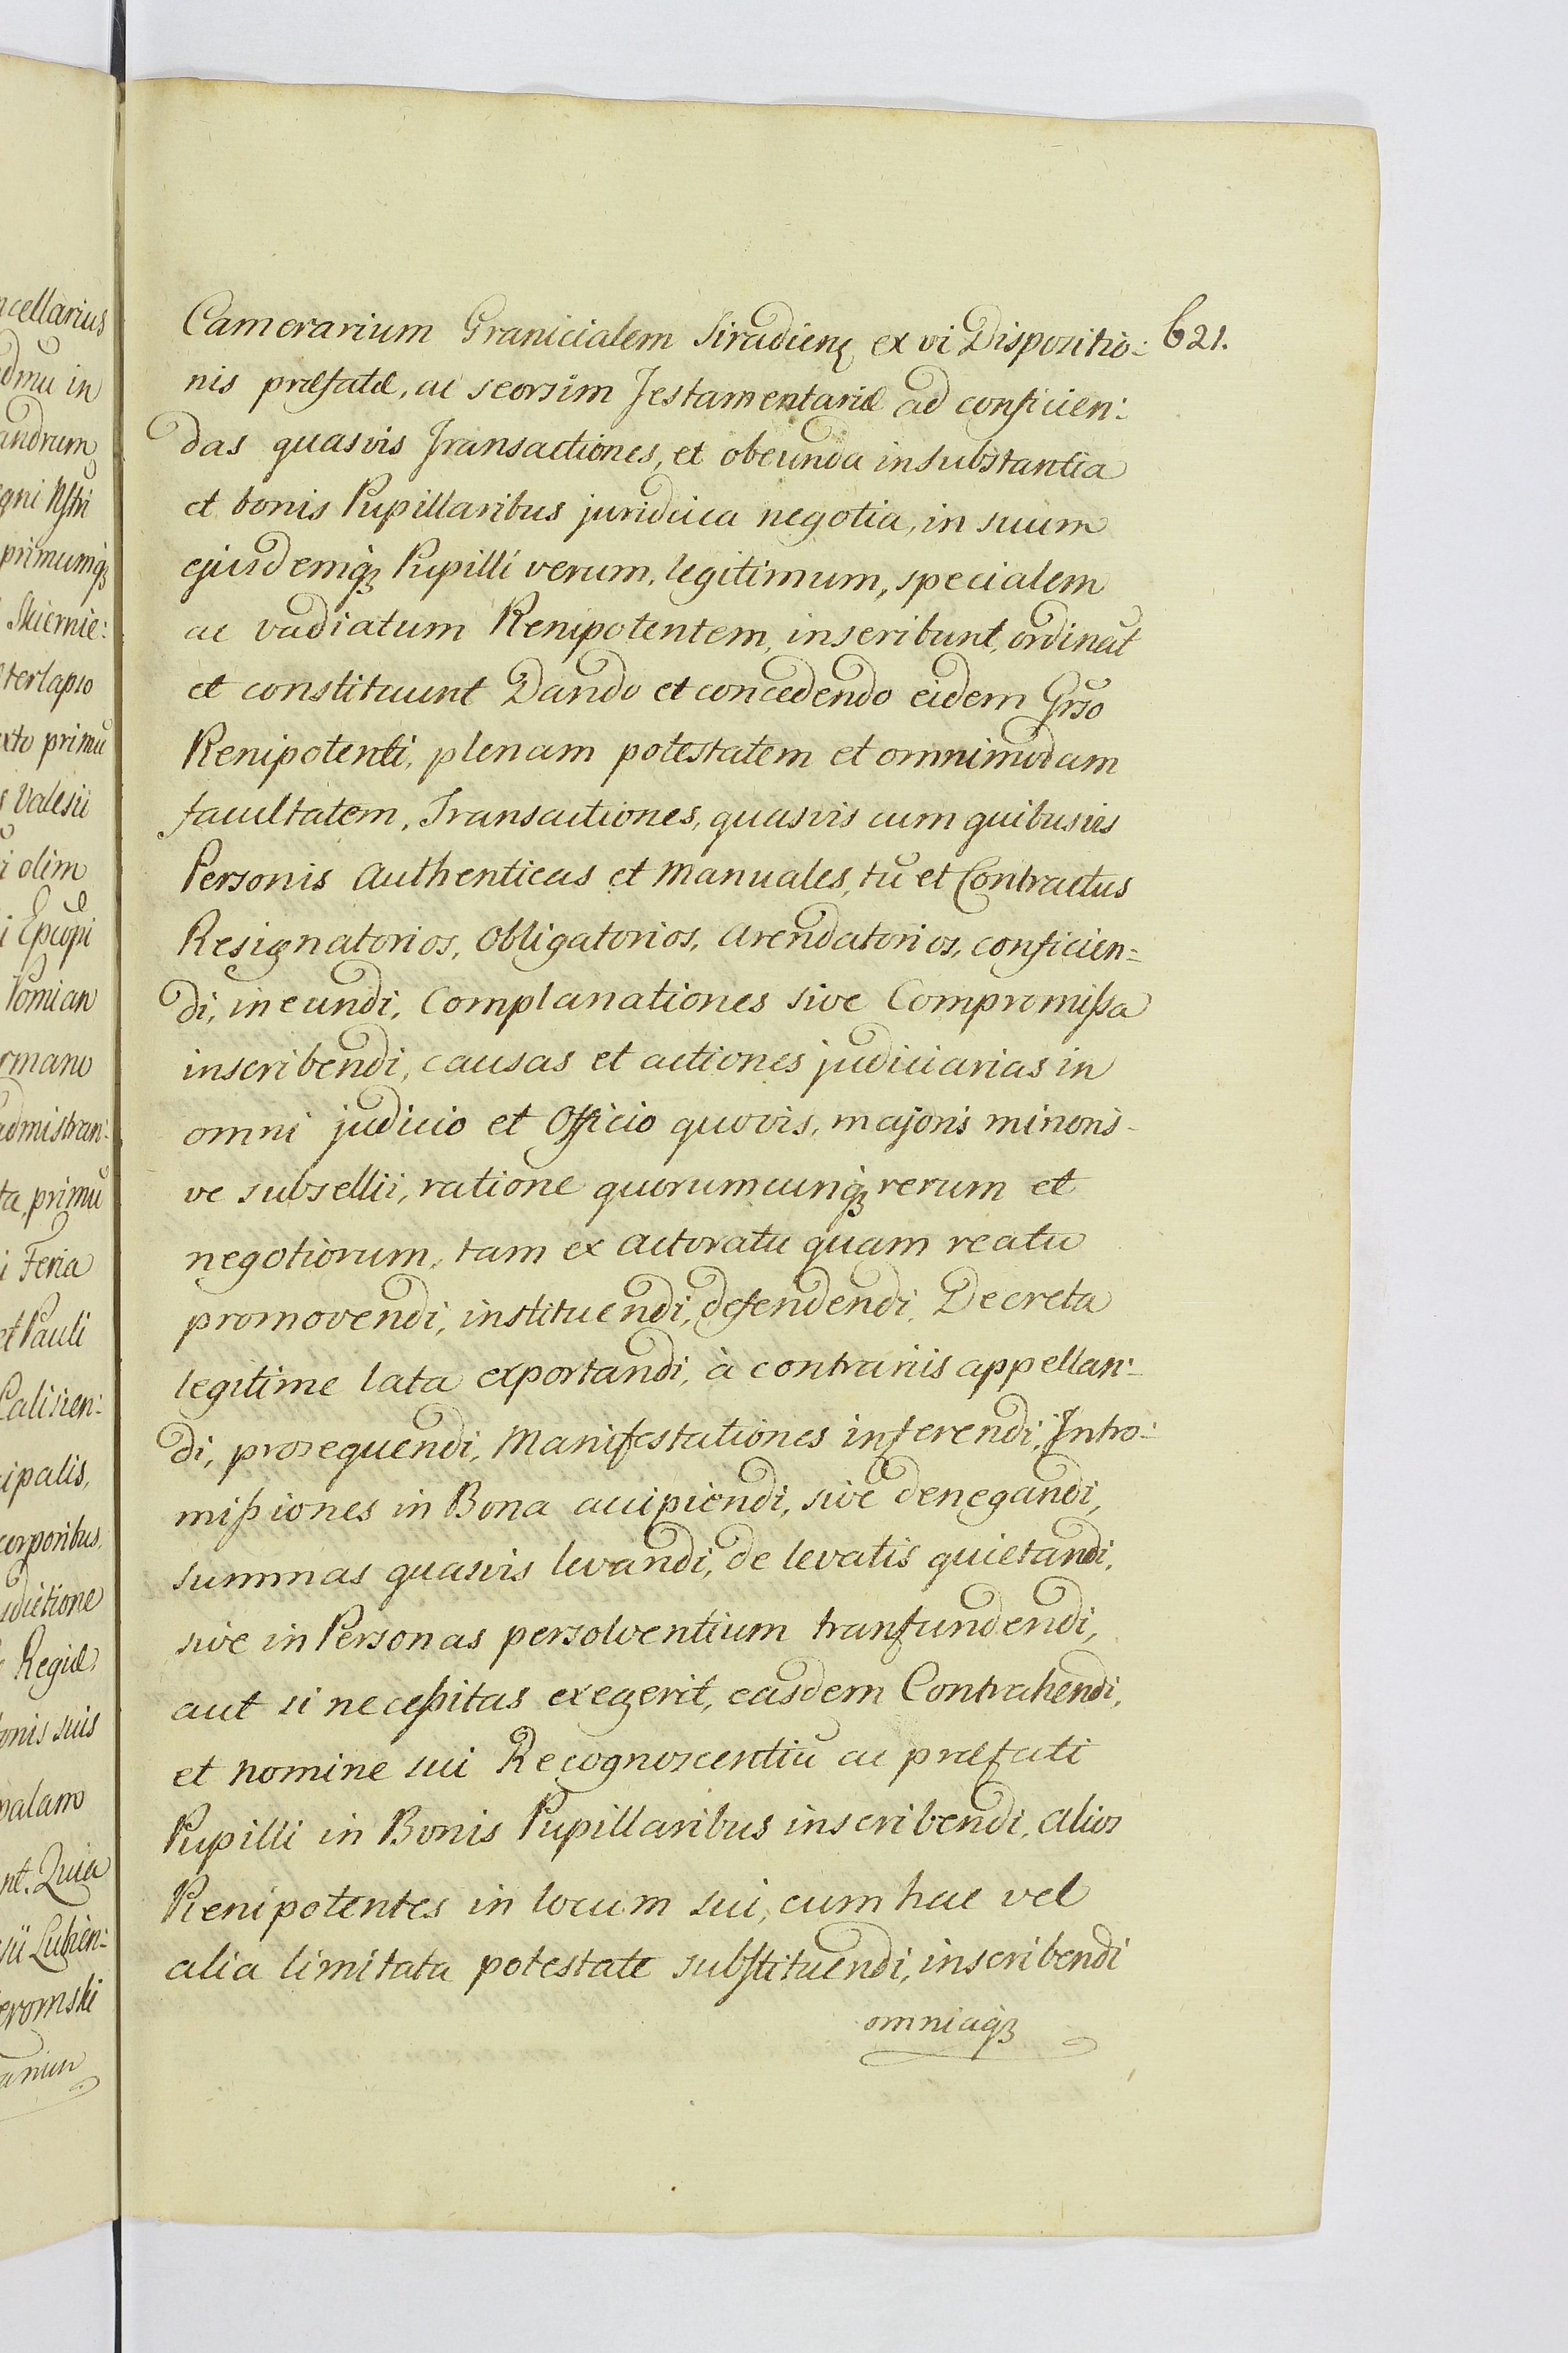 621.
Camerarium Granicialem Siradien̄ ex vi Dispositio:
nis præfatæ, ac seorsim Testamentariæ ad conficien:
das quasvis Transactiones, et obeunda in substantia
et bonis Pupillaribus juridica negotia, in suum
ejusdemqꝫ Pupilli verum, legitimum, specialem
ac vadiatum Plenipotentem, inscribunt, ordināt
et constituunt Dando et concedendo eidem Grso
Plenipotenti, plenam potestatem et omnimodam
facultatem, Transactiones, quasvis cum quibusvis
Personis Authenticas et Manuales, tū et Contractus
Resignatorios, Obligatorios, Arendatorios, conficien=
di, ineundi, Complanationes sive Compromissa
inscribendi, causas et actiones judiciarias in
omni judicio et Officio quovis, majoris minoris-
ve subsellii, ratione quorumcunqꝫ rerum et
negotiorum, tam ex actoratu quam reatu
promovendi, instituendi, defendendi, Decreta
legitime lata exportandi, à contrariis appellan:
di, prosequendi, Manifestationes inferendi, Intro:
missiones in Bona accipiendi, sive denegandi,
summas quasvis levandi, de levatis quietandi,
sive in Personas persolventium tranfundendi,
aut si necessitas exegerit, easdem Contrahendi,
et nomine sui Recognoscentiū ac præfati
Pupilli in Bonis Pupillaribus inscribendi, Alios
Plenipotentes in locum sui, cum hac vel
alia limitata potestate substituendi, inscribendi
omniaqꝫ